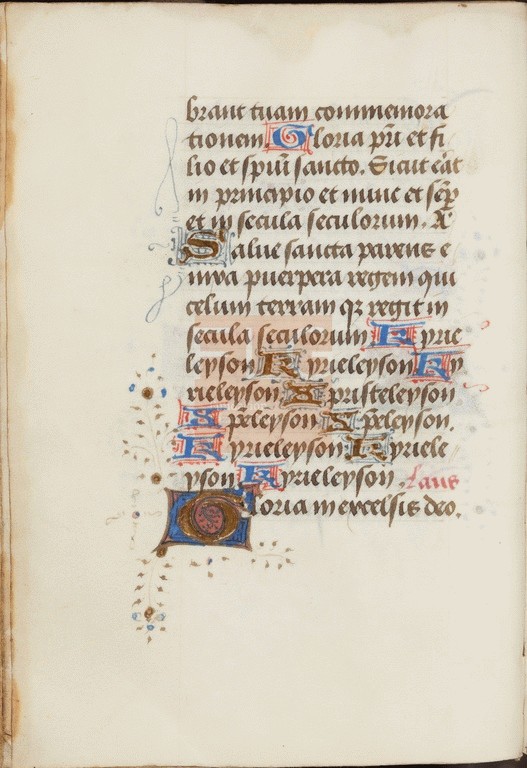 brant tuam commemora
tionem Gloria pri̅ et fi
lio et spiui̅ sancto. Sicut eāt
in principio et nunc et semꝑ
et in secula seculorum. A̅
Salue sancta parens e
nixa puerpera regem qui
celum terram qꝫ regit in
secula seculorum Kyrie
leyson Kyrieleyson Ky
rieleyson Xpristeleyson
Xpe̅leyson Xpe̅leyson.
Kyrieleyson Kyriele
yson Kyrieleyson. Laus
Gloria in excelsis deo.